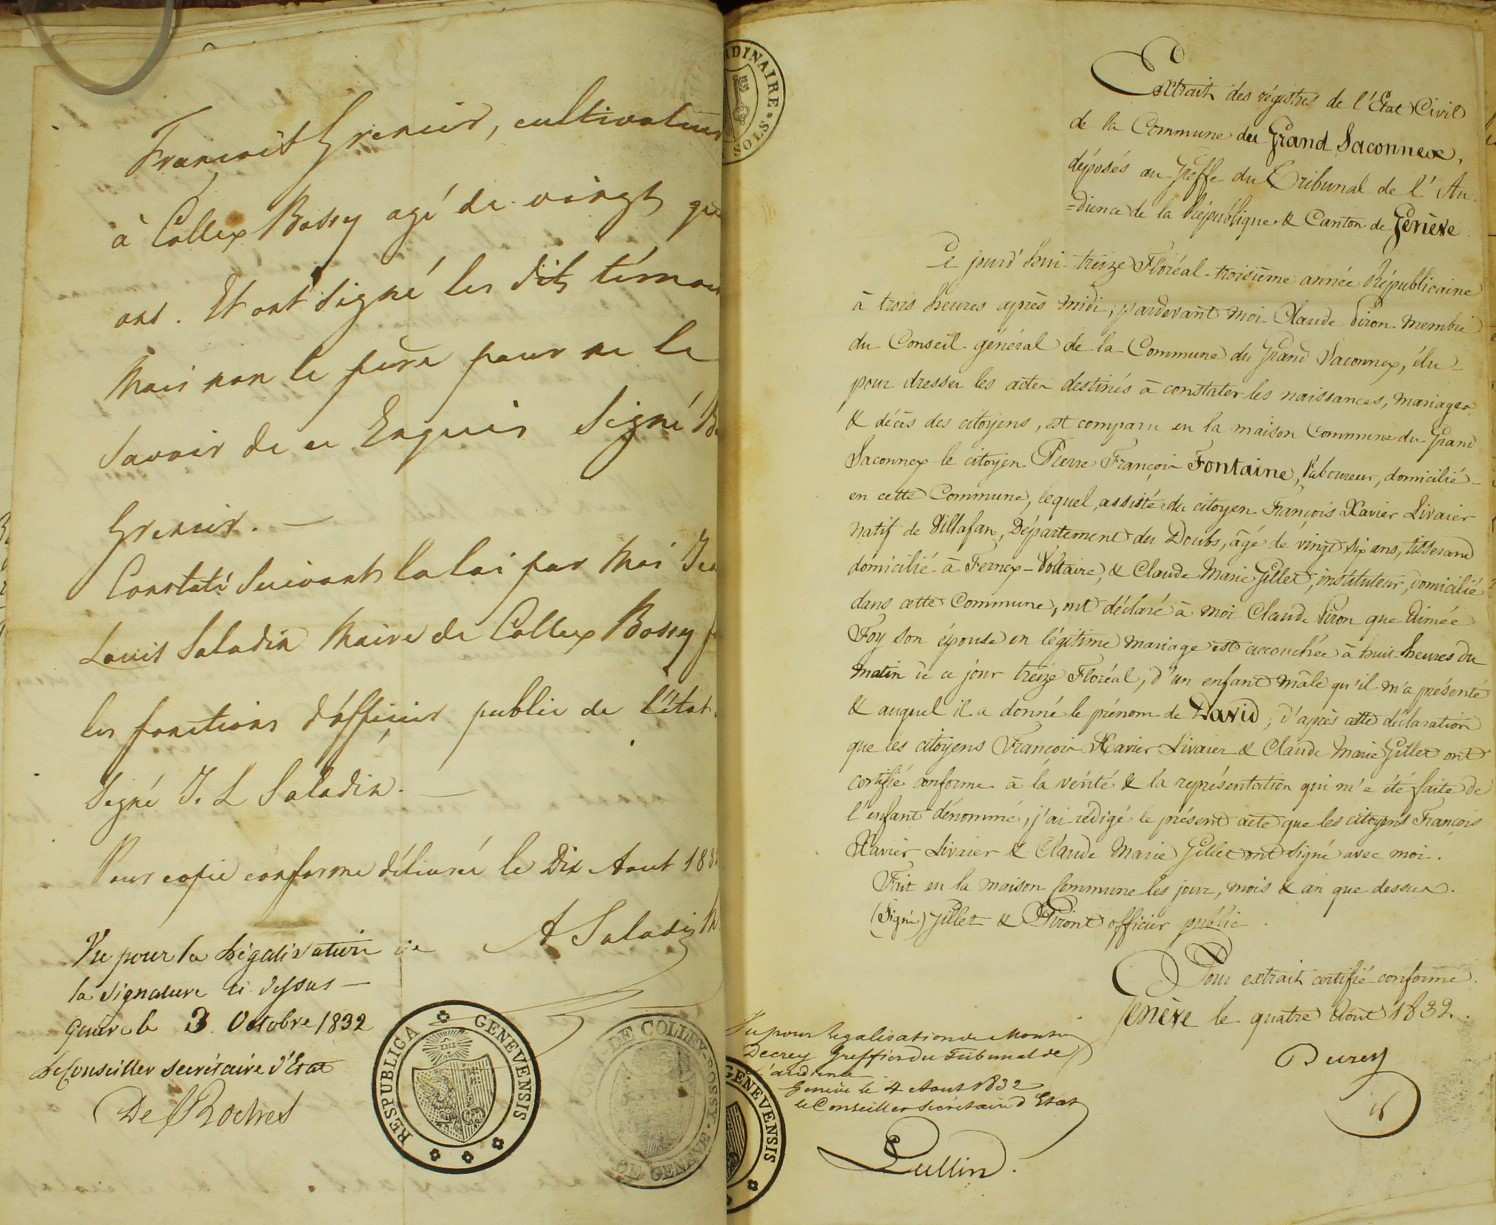 François Grenier, cultivateur
à Collex Bossy agé de vingt
ans. Et ont signé les dits témoins
Mais non le père pour ne le
Savoir de ce Enquis Signé
Grenier. —
Constaté Suivant la loi par Moi
Louis Saladin Maire de Collex Bossy
les fonctions d'officier public de l'état
Signé J. L Saladin. —
Pour copie conforme délivrée le Dix Aout 183
A Saladin
Vu pour la Légalisation de
la signature ci dessus —
Genève le 3 Octobre 1832
Le Conseiller secrétaire d'Etat
De Roches
RESPUBLICA GENEVENSIS
DE COLLEX-BOSSY
DE GENEVE
DINAIRE
SOLS
Extrait des régistres de l'Etat Civil
de la Commune du Grand Saconnex,
déposés au Greffe du Tribunal de l'Au-
=dience de la République & Canton de Genève.
Ce jourd'hui treize Floréal troisième année Républicaine
à trois heures après midi, pardevant moi Claude Piron membre
du Conseil général de la Commune du Grand Saconnex, élu
pour dresser les actes destinés à constater les naissances, mariages
& décès des citoyens, est comparu en la maison Commune du Grand
Saconnex le citoyen Pierre François Fontaine, laboureur, domicilié
en cette Commune, lequel, assisté du citoyen François Xavier Livaier
natif de Villafan, Département du Doubs, âgé de vingt six ans, tisserand
domicilié à Fernex-Voltaire, & Claude Marie Gillet, instituteur, domicilié
dans cette Commune, ont déclaré à moi Claude Piron que Aimée
Foy son épouse en légitime mariage est accouchée à huit heures du
matin de ce jour treize Floréal, d'un enfant mâle qu'il m'a présenté
& auquel il a donné le prénom de David, d'après cette déclaration
que les citoyens François Xavier Livaier & Claude Marie Gillet ont
certifié conforme à la vérité & la représentation qui m'a été faite de
l'enfant dénommé, j'ai rédigé le présent acte que les citoyens François
Xavier Livaier & Claude Marie Gillet ont signé avec moi.
Fait en la maison Commune les jour, mois & an que dessus.
(Signé) Gillet & Piront officier public.
Pour extrait certifié conforme.
Genève le quatre Aout 1832.
Decrey
Vu pour légalisation de Monsr
Decrey Greffier du Tribunal de
l'audience
Genève le 4 Aout 1832
le Conseiller Secrétaire d'Etat
Lullin.
GENEVENSIS